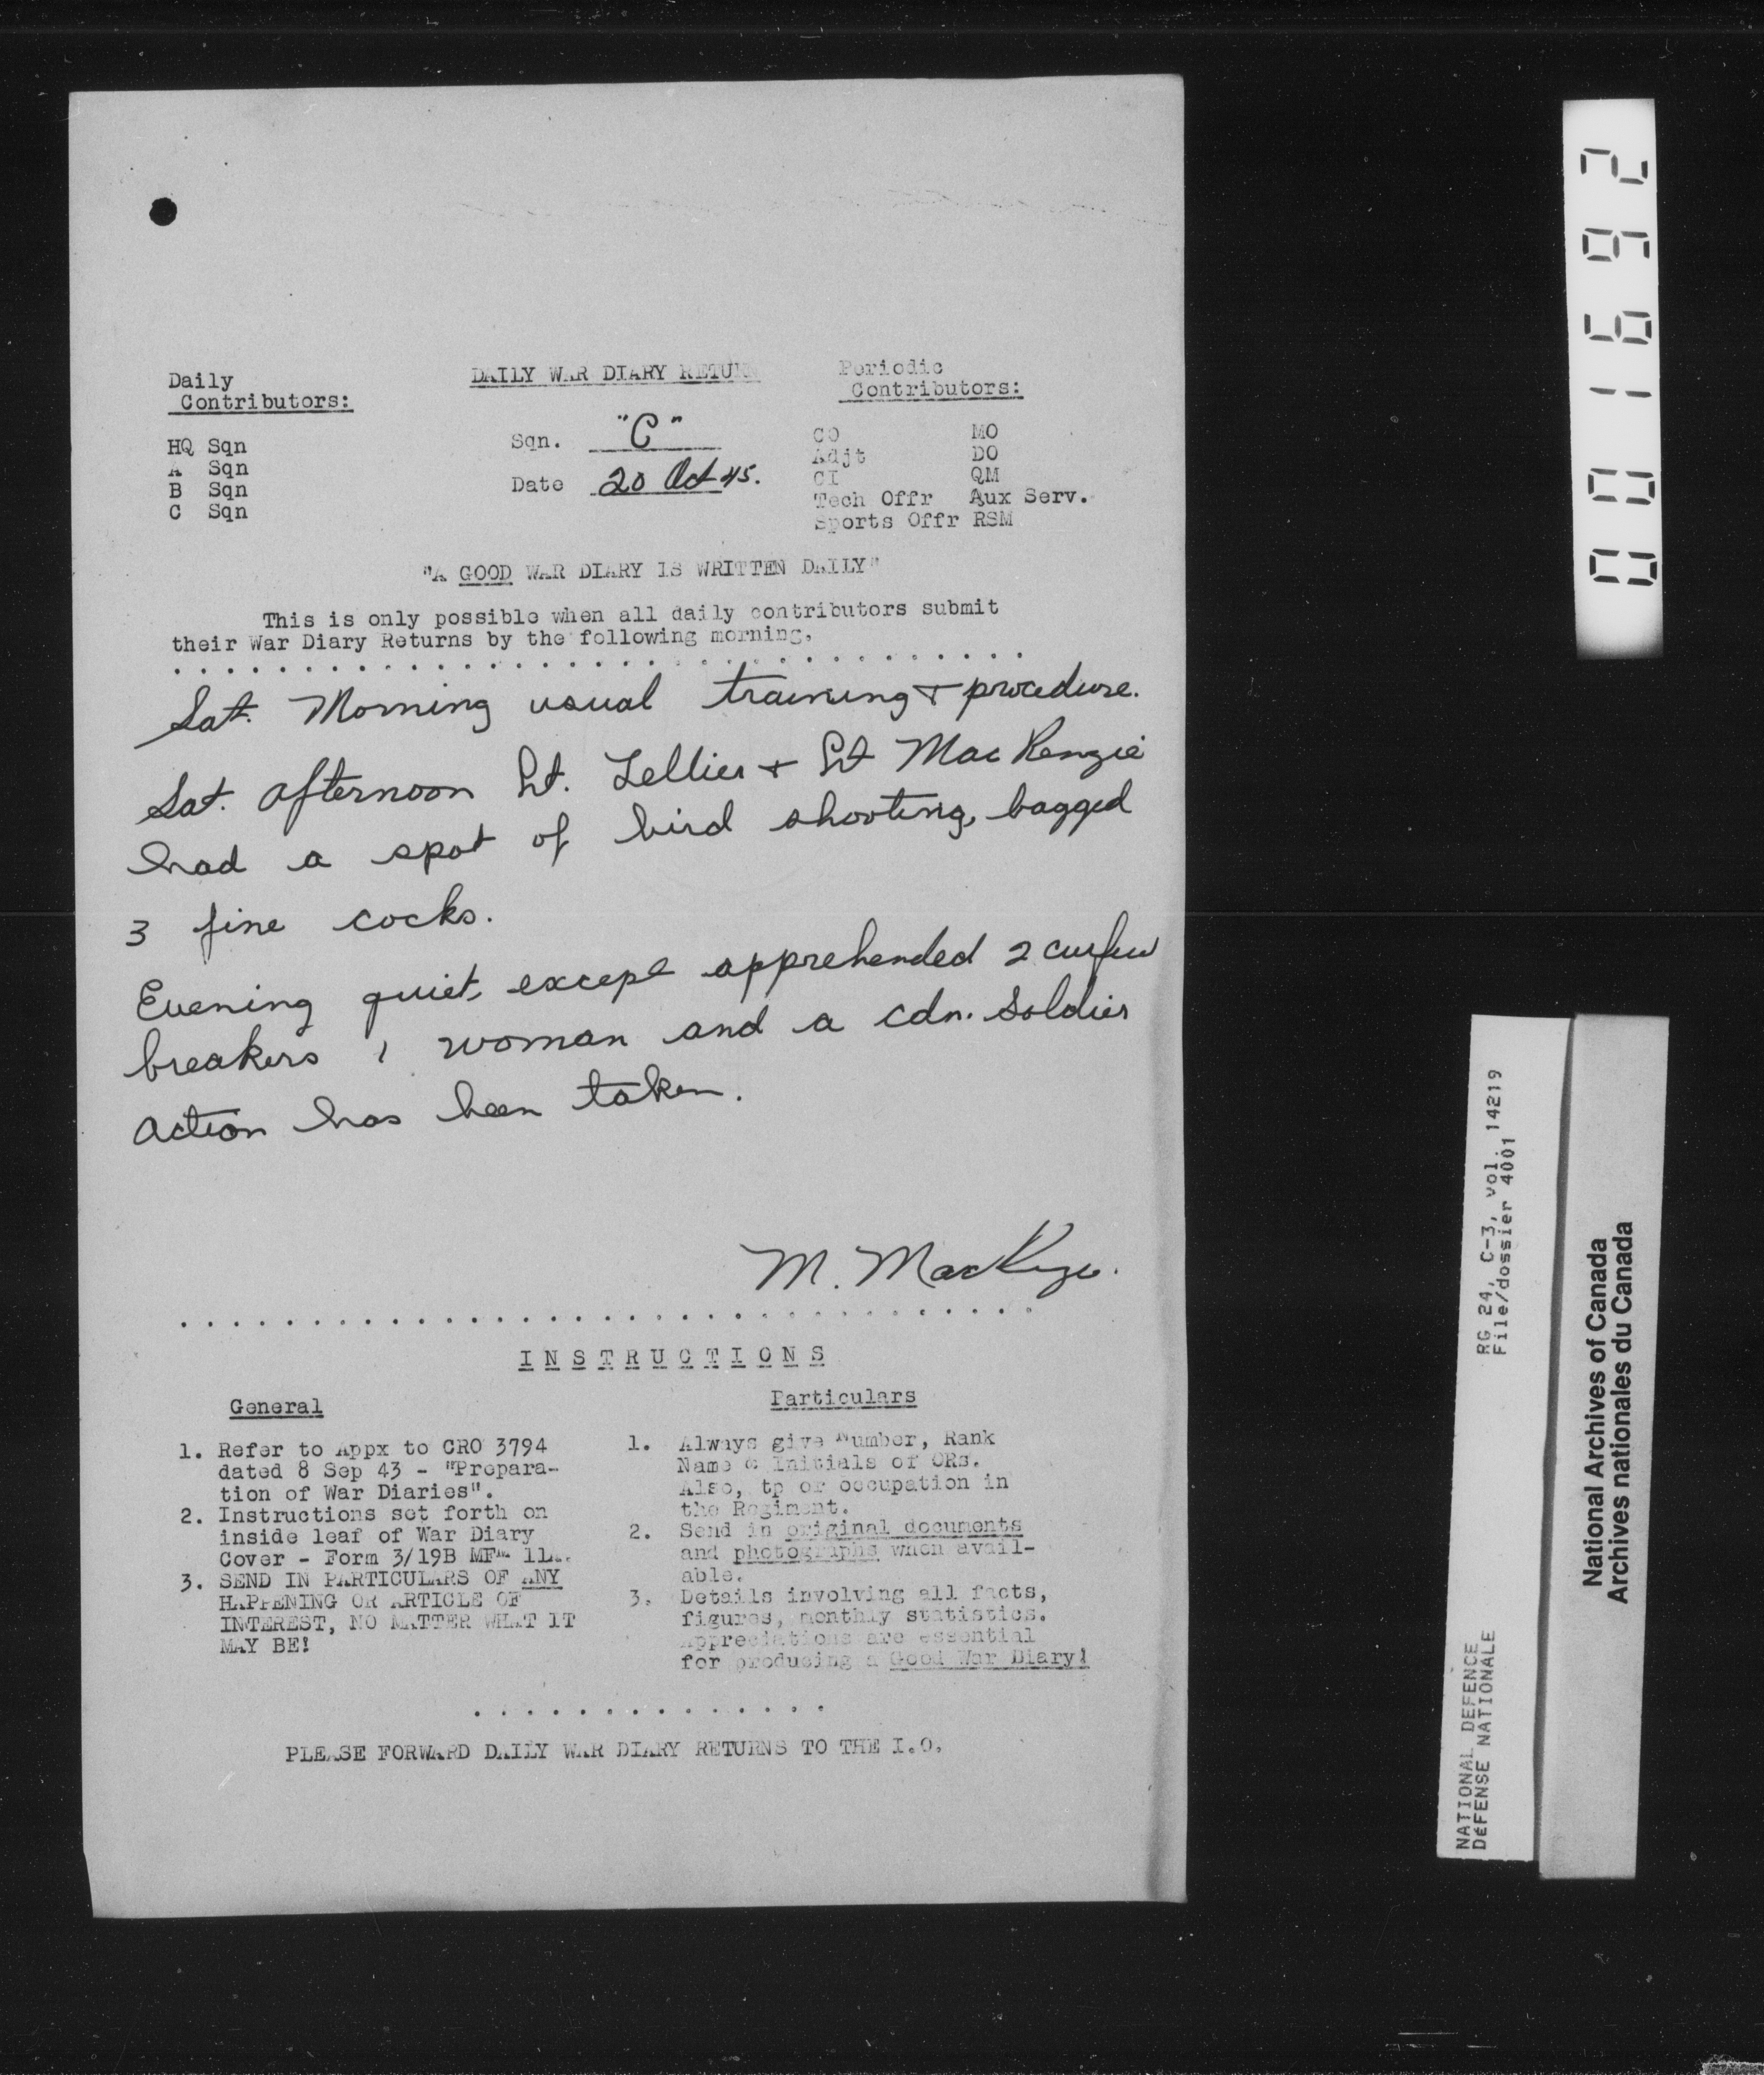 Daily
Contributors:
HQ Sqn
A Sqn
B Sqn
C Sqn
DAILY WAR DIARY RETURN
Sqn. "C"
Date 20 Oct 45.
Periodic
Contributors:
CO MO
Adjt DO
CI QM
Tech Offr Aux Serv.
Sports Offr RSM
"A GOOD WAR DIARY IS WRITTEN DAILY"
This is only possible when all daily contributors submit
their War Diary Returns by the following morning.
Sat. Morning usual training & procedure.
Sat. afternoon Lt. Tellier & Lt MacKenzie
had a spot of bird shooting, bagged
3 fine cocks.
Evening quiet, except apprehended 2 curfew
breakers 1 woman and a cdn. soldier
action has been taken.
M. MacKenzie.
INSTRUCTIONS
General
1. Refer to Appx to CRO 3794
dated 8 Sep 43 - "Prepara-
tion of War Diaries".
2. Instructions set forth on
inside leaf of War Diary
Cover - Form 3/19B MFM
3. SEND IN PARTICULARS OF ANY
HAPPENING OR ARTICLE OF
INTEREST, NO MATTER WHAT IT
MAY BE!
Particulars
1. Always give Number, Rank
Name & Initials of ORs.
Also, tp or occupation in
the Regiment.
2. Send in original documents
and photographs when avail-
able.
3. Details involving all facts,
figures, monthly statistics.
Appreciations are essential
for producing a Good War Diary!
PLEASE FORWARD DAILY WAR DIARY RETURNS TO THE I.O.
001692
RG 24, C-3, vol. 14219
File/dossier 4001
NATIONAL DEFENCE
DéFENSE NATIONALE
National Archives of Canada
Archives nationales du Canada